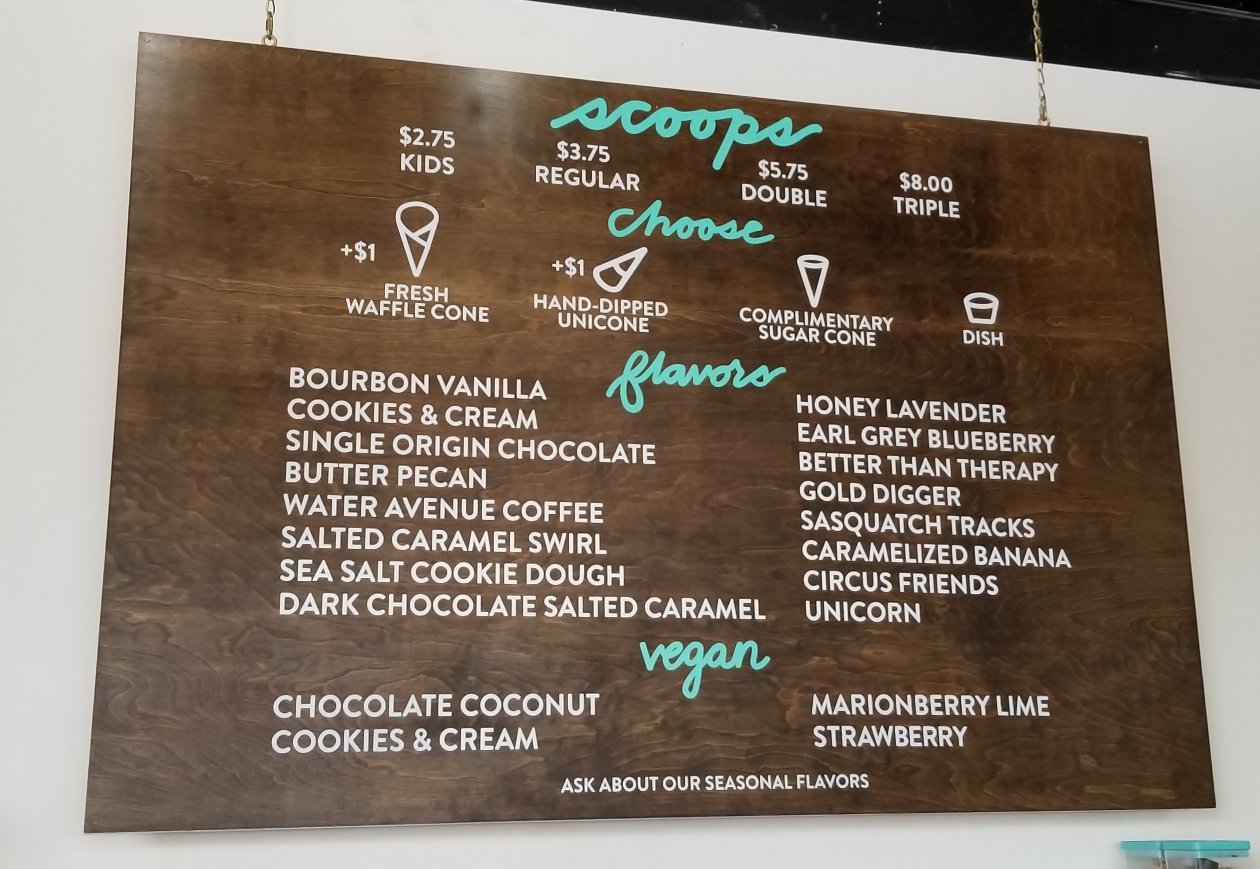 scoops
$2.75
KIDS
$3.75
REGULAR
$5.75
DOUBLE
$8.00
TRIPLE
choose
+$1
FRESH
WAFFLE CONE
+$1
HAND-DIPPED
UNICONE
COMPLIMENTARY
SUGAR CONE
DISH
flavors
BOURBON VANILLA
COOKIES & CREAM
SINGLE ORIGIN CHOCOLATE
BUTTER PECAN
WATER AVENUE COFFEE
SALTED CARAMEL SWIRL
SEA SALT COOKIE DOUGH
DARK CHOCOLATE SALTED CARAMEL
HONEY LAVENDER
EARL GREY BLUEBERRY
BETTER THAN THERAPY
GOLD DIGGER
SASQUATCH TRACKS
CARAMELIZED BANANA
CIRCUS FRIENDS
UNICORN
vegan
CHOCOLATE COCONUT
COOKIES & CREAM
MARIONBERRY LIME
STRAWBERRY
ASK ABOUT OUR SEASONAL FLAVORS